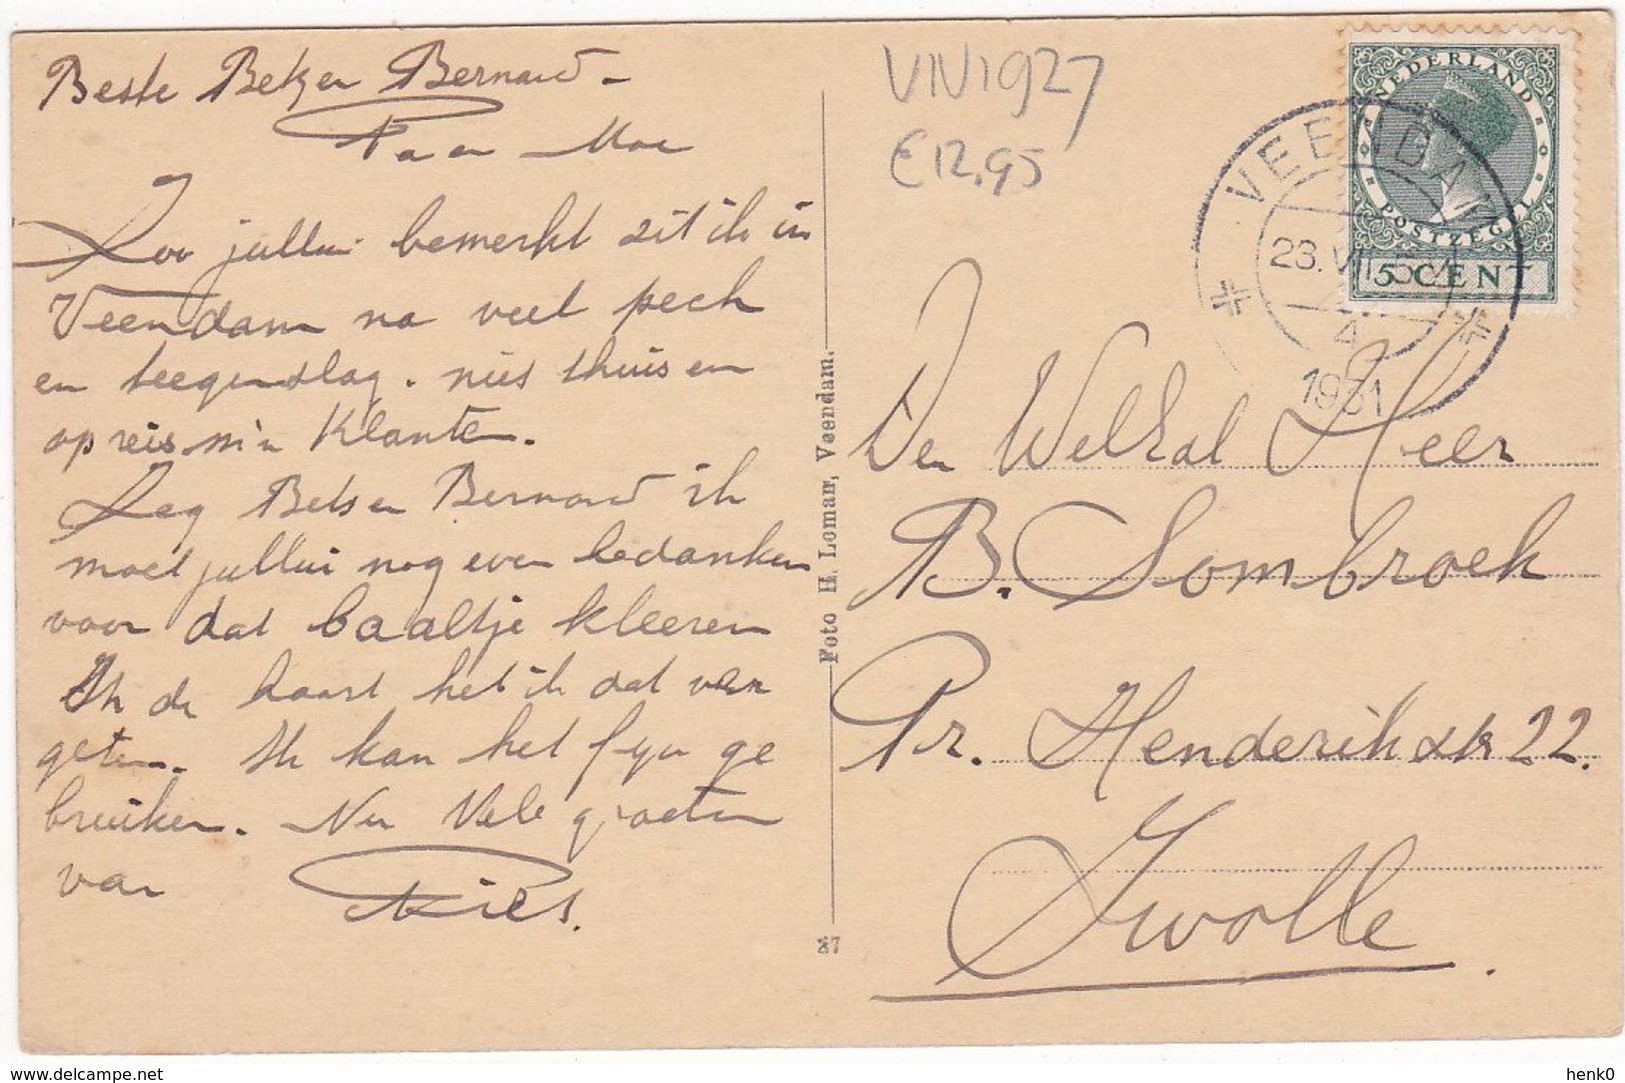 Beste Betzen Bernard -
Pa en Moe
Zoo jullui bemerkt zit ik in
Veendam na veel pech
en teegenslag. niet thuis en
op reis m'n Klanten.
Zeg Bets en Bernard ik
moet jullui nog even bedanken
voor dat baaltje kleeren
Ik de haast het ik dat ver
geten. Ik kan het fyn ge
bruiken. Nu Vele groeten
van Ries.
VNV1927
€12,95
NEDERLAND
POSTZEGEL
5 CENT
VEENDAM
23.VII
4
1931
Foto H. Loman, Veendam.
27
Den WelEal Heer
B. Sombroek
Pr. Hendrikstr 22.
Zwolle.
delcampe.net
henk0